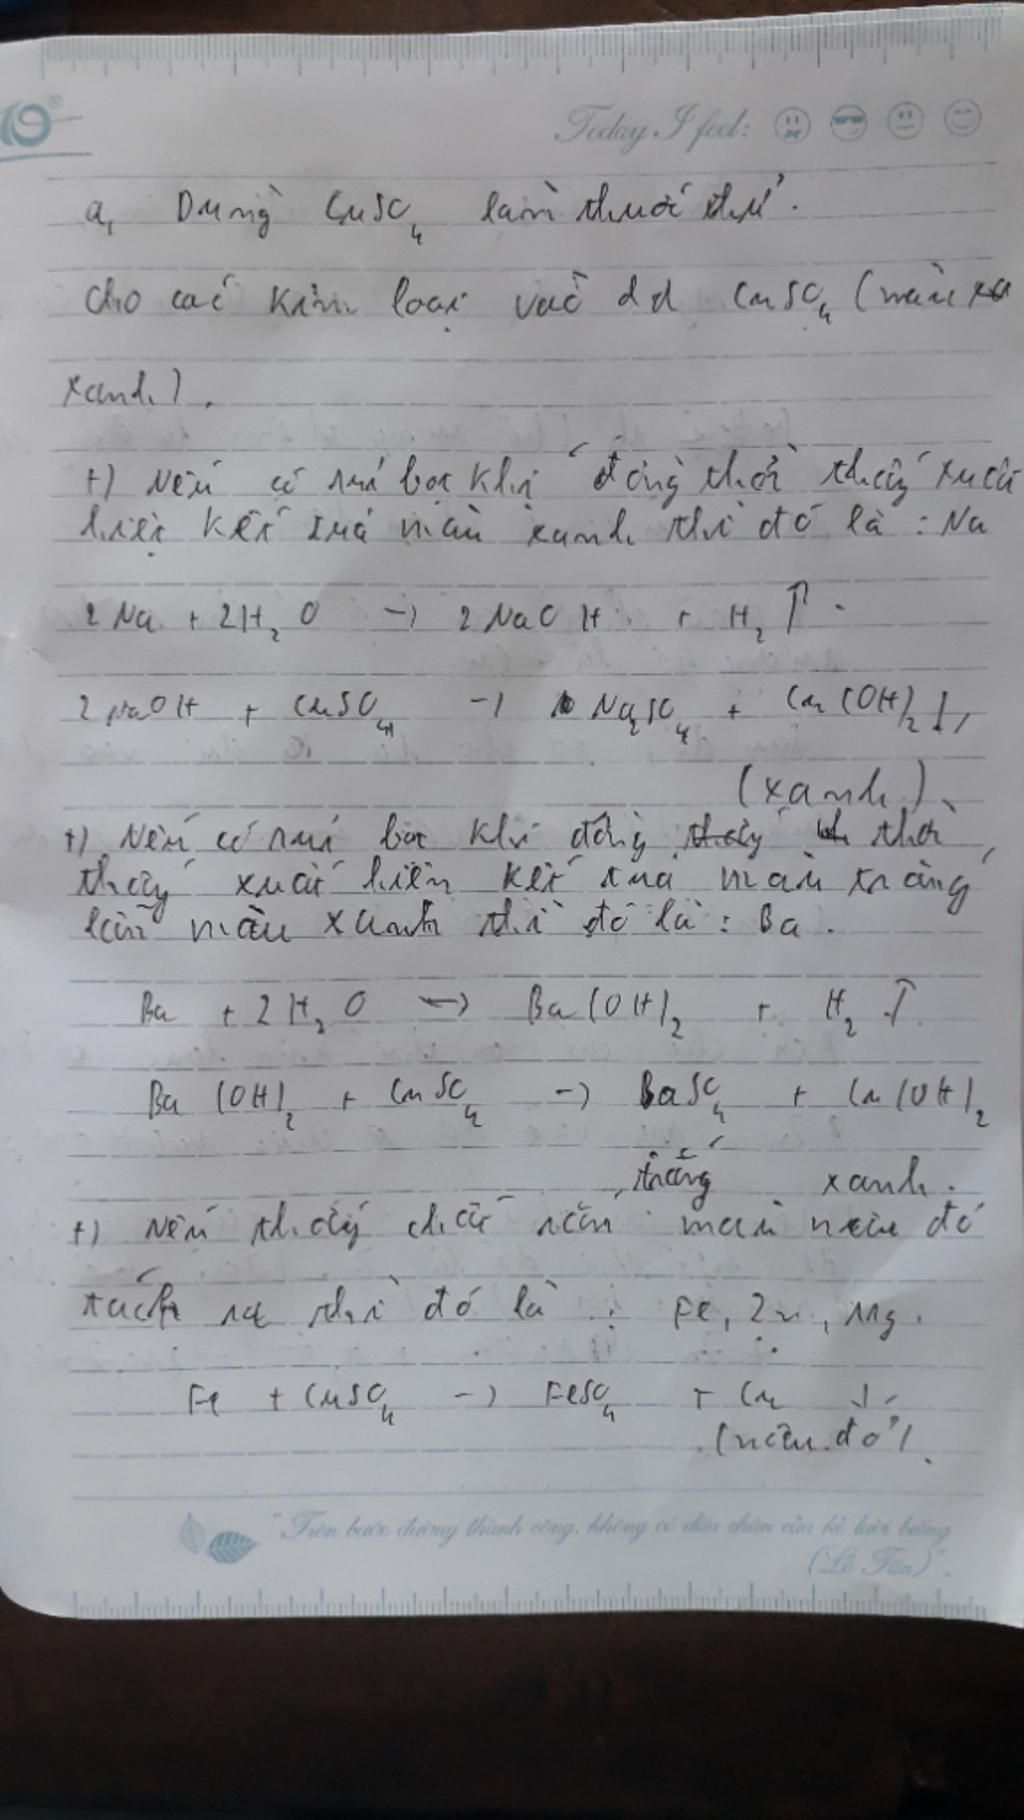 Today I feel:
a, Dùng CuSO4 làm thuốc thử.
Cho các kim loại vào dd CuSO4 (màu
xanh).
+) Nếu có sủi bọt khí đồng thời thấy xuất
hiện kết tủa màu xanh thì đó là : Na
2Na + 2H2O → 2NaOH + H2 ↑.
2NaOH + CuSO4 → Na2SO4 + Cu(OH)2 ↓,
(xanh).
+) Nếu có sủi bọt khí đồng thời,
thấy xuất hiện kết tủa màu trắng
lẫn màu xanh thì đó là : Ba.
Ba + 2H2O → Ba(OH)2 + H2 ↑.
Ba(OH)2 + CuSO4 → BaSO4 + Cu(OH)2
trắng xanh.
+) Nếu thấy chất rắn màu nâu đỏ
tách ra thì đó là : Fe, Zn, Mg.
Fe + CuSO4 → FeSO4 + Cu ↓
(nâu đỏ).
"Trên bước đường thành công, không có dấu chân của kẻ lười biếng
(Lỗ Tấn)".